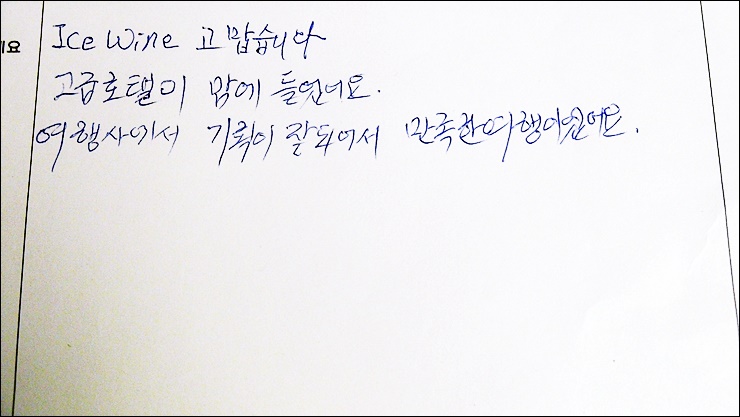 Ice Wine 고맙습니다
고급호텔이 맘에 들었어요.
여행사에서 기획이 잘되어서 만족한여행이었어요.